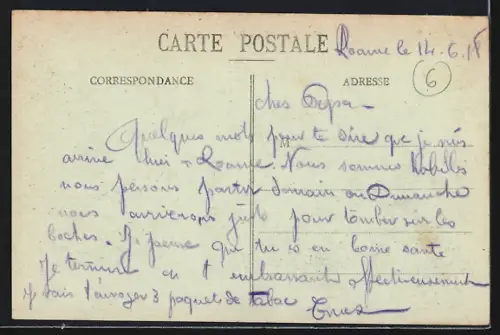 CARTE POSTALE
Roanne le 14-6-18
CORRESPONDANCE
ADRESSE
6
cher Papa
Quelques mots pour te dire que je suis
M
arrivé hier à Roanne. Nous sommes habillés
nous pensons partir demain ou Dimanche
nous arriverons just pour tomber sur les
boches. Je pense que tu es en bonne santé
Je termine en t embrassant affectueusement
Je vais t'envoyer 3 paquets de tabac